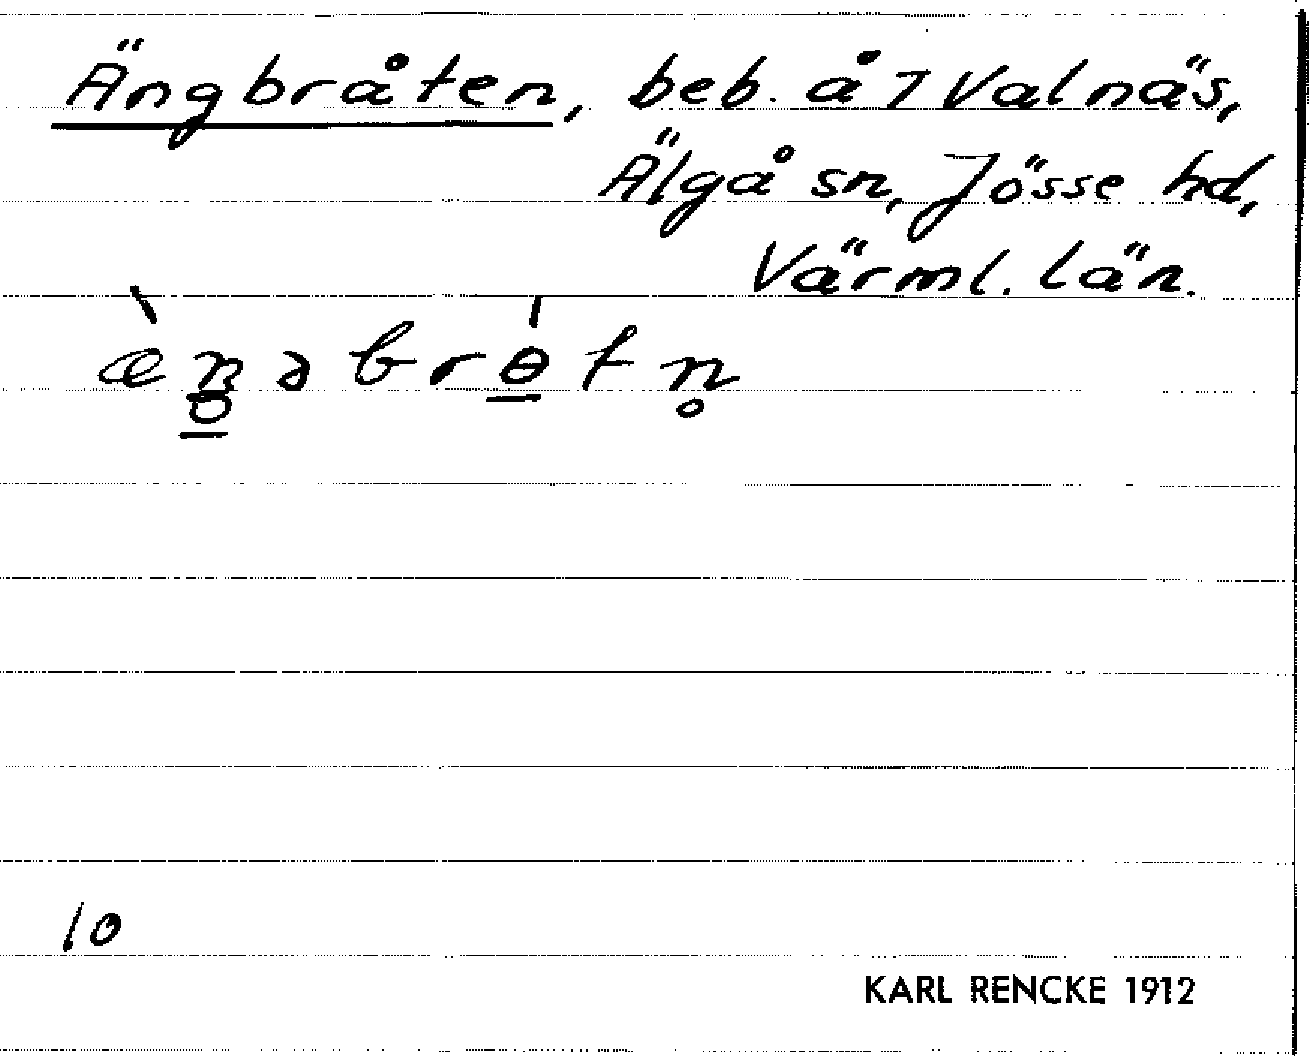 Ängbråten, beb. å 7 Valnäs,
Älgå sn, Jösse hd,
Värml. län.
10
KARL RENCKE 1912